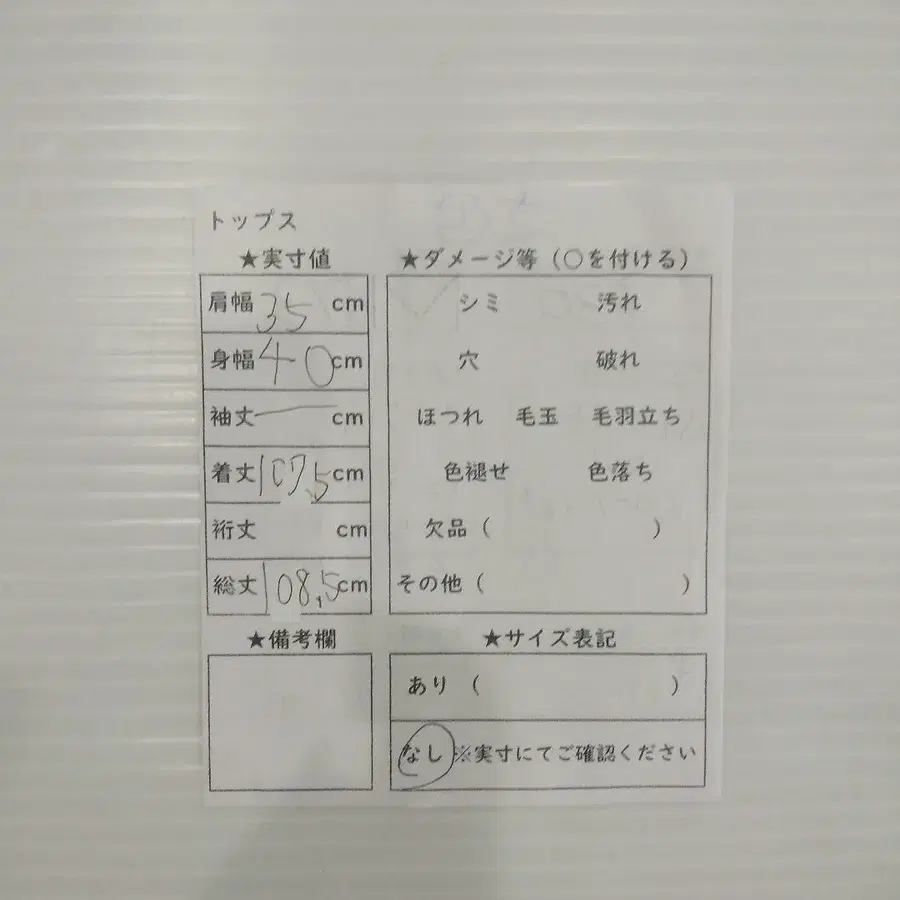 トップス
★実寸値
肩幅 35 cm
身幅 40 cm
袖丈 ー cm
着丈 107.5 cm
裄丈 cm
総丈 108.5 cm
★備考欄
★ダメージ等（○を付ける）
シミ 汚れ
穴 破れ
ほつれ 毛玉 毛羽立ち
色褪せ 色落ち
欠品（ ）
その他（ ）
★サイズ表記
あり（ ）
なし ※実寸にてご確認ください